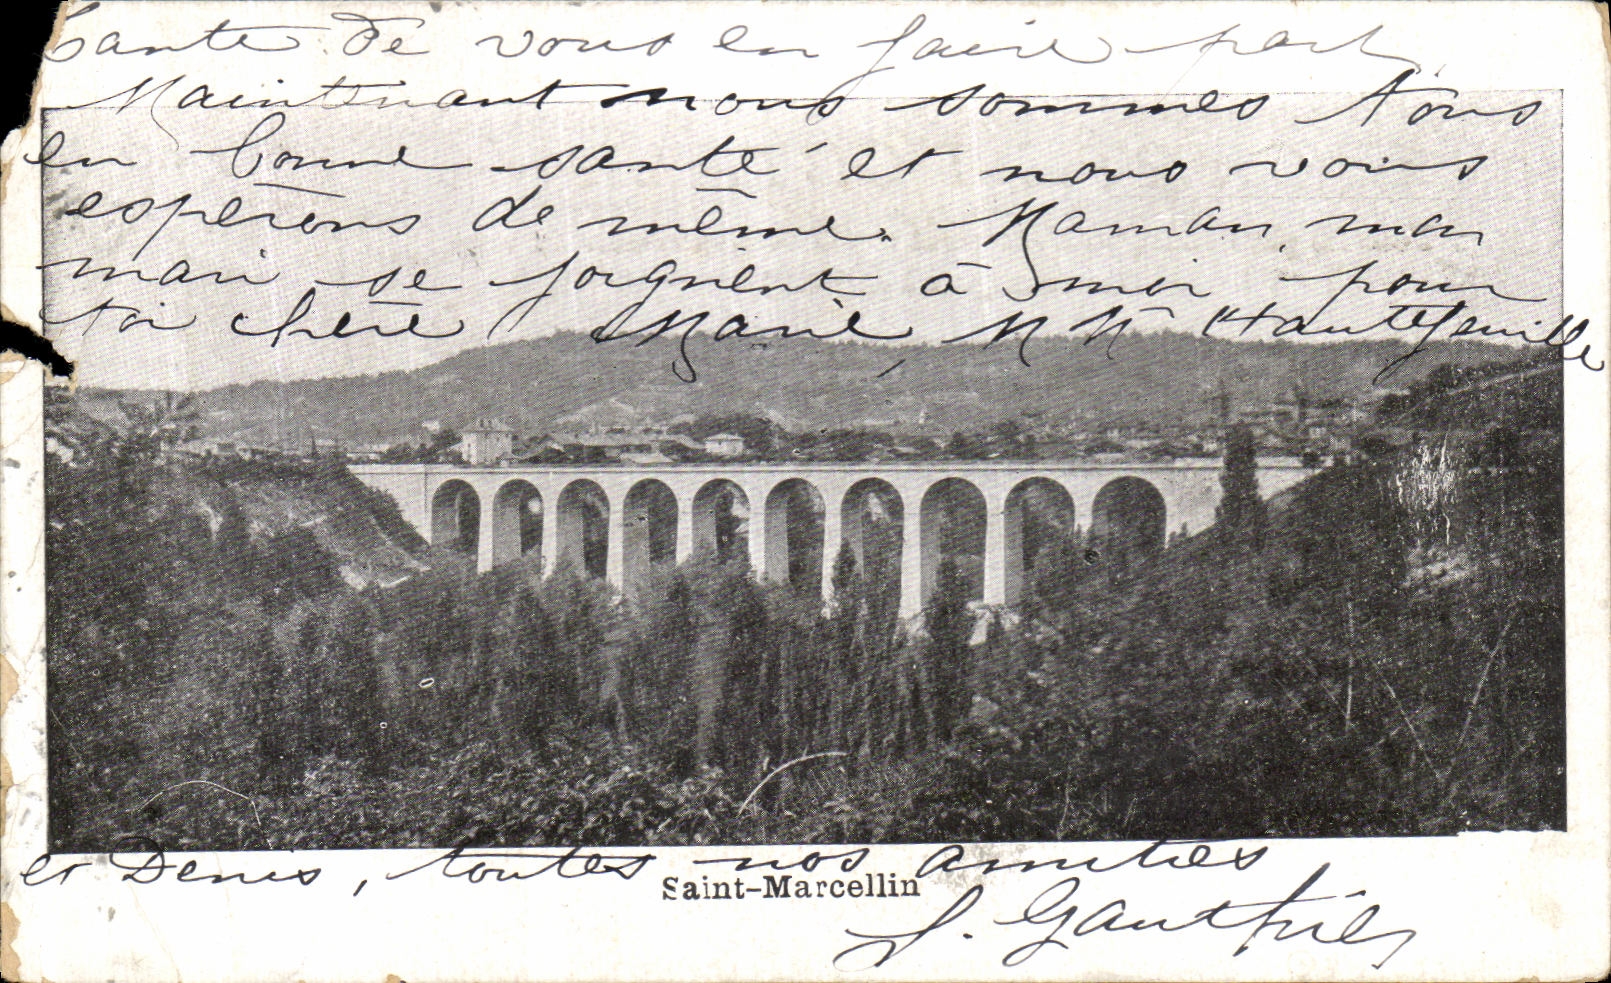 santé de vous en faire part
Maintenant nous sommes tous
en bonne santé et nous vous
espérons de même. Maman, mon
mari se joignent à moi pour
toi chère Marie, M Mme Hautefeuille
et Denis, toutes nos amitiés
Saint-Marcellin
J. Gauthier